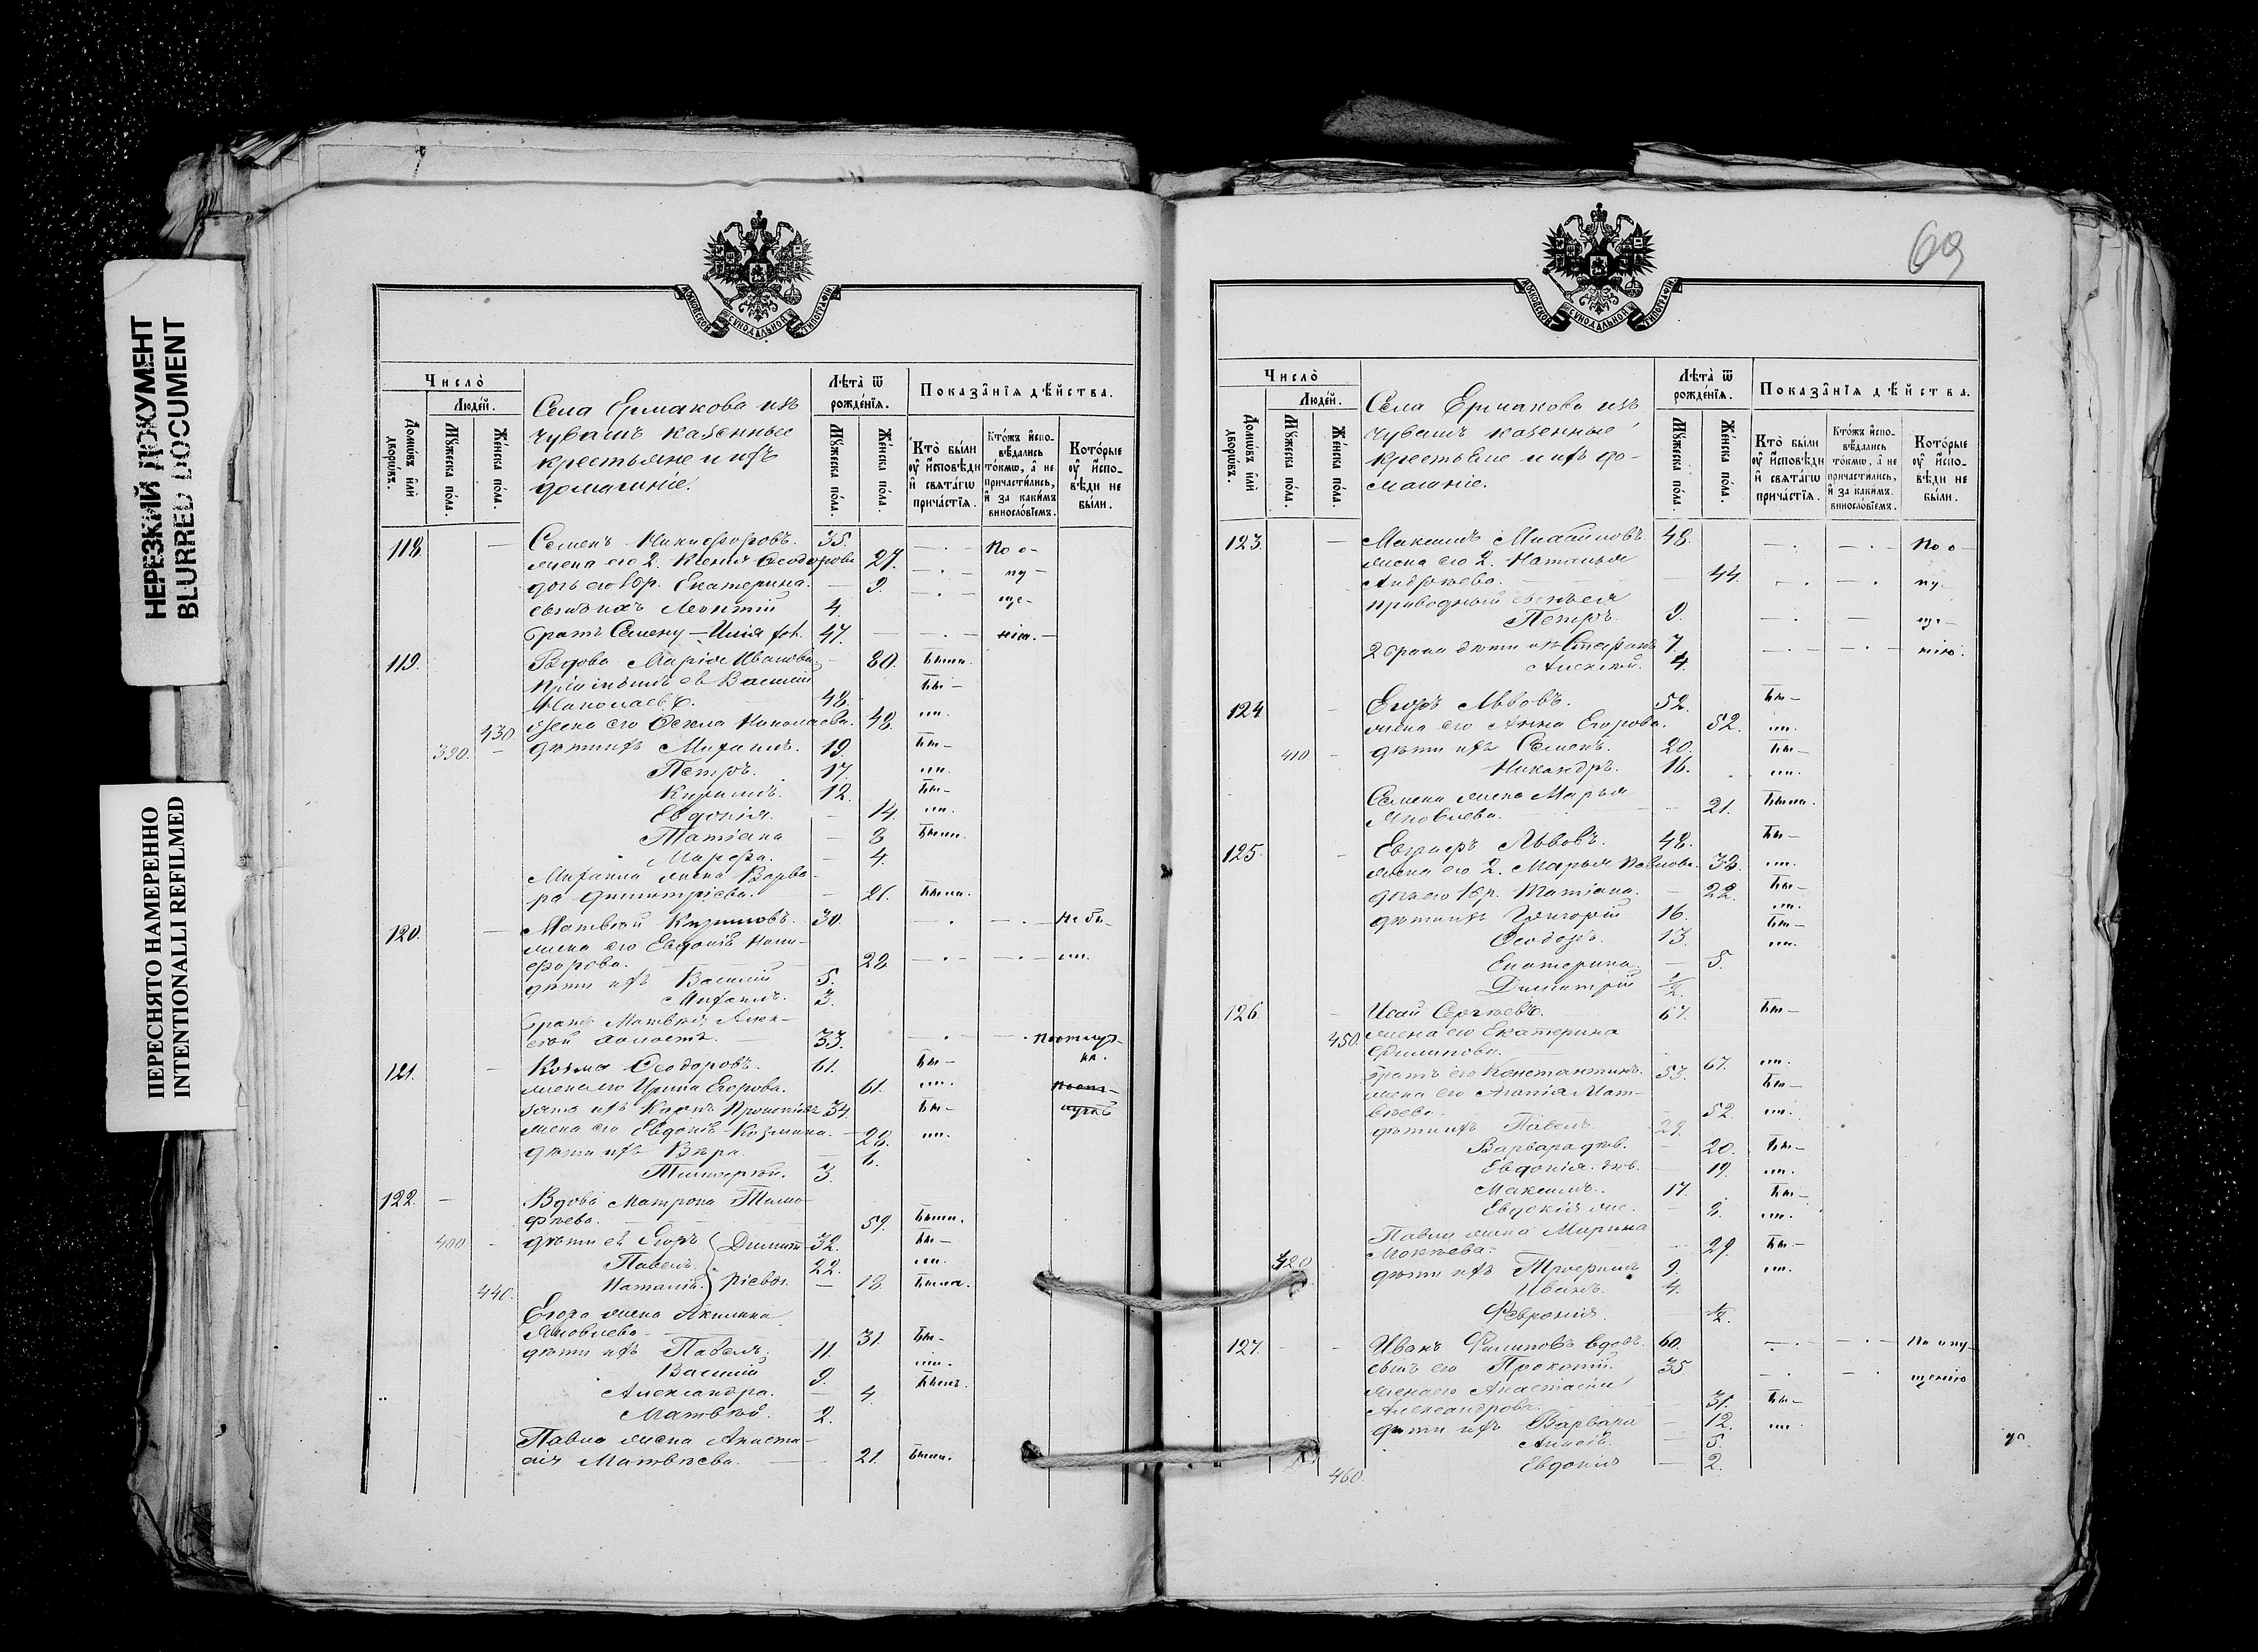 НЕРЕЗКИЙ ДОКУМЕНТ
BLURRED DOCUMENT
ПЕРЕСНЯТО НАМЕРЕННО
INTENTIONALLI REFILMED
МОСКОВСКОЙ СѴНОДАЛЬНОЙ ТИПОГРАФІИ
Число̀
Людей.
Домѡвъ илѝ дворѡвъ.
Мꙋжеска по́ла.
Же́нска по́ла.
Села Ермакова изъ
чувашъ казенные
крестьяне и ихъ
домашніе.
Лѣта̀ ѿ рожде́нїѧ.
Мꙋжеска по́ла.
Же́нска по́ла.
Показа̑нїѧ дѣ́йства.
Кто̀ бы́ли ᲂу҆ и҆сповѣ́ди и҆ свѧта́гѡ прича́стїѧ.
Кто́жъ и҆спо-вѣ́дались то́кмѡ, а҆ не причасти́лись, и҆ за каки́мъ виносло́вїемъ.
Кото́рые ᲂу҆ и҆спо-вѣ́ди не бы́ли.
118. Семенъ Никифоровъ. 35. По о-
жена его 2. Ксенія Ѳеодорова 27. пу-
дочь его 1 бр. Екатерина. 9. ще-
сынъ ихъ Леонтій 4.
братъ Семену — Илія 47. нію.
119. Вдова Марія Иванова 80. была.
Василій
Николаевъ. 48. бы-
430 жена его Ѳекла Николаева. 48. ли.
390. дѣти ихъ Михаилъ. 19. бы-
Петръ. 17. ли.
Кирилъ. 12. бы-
Евдокія. 14. ли.
Татіана 8 были.
Марѳа. 4.
Михаила жена Варва-
ра Димитріева. 21. была.
120. Матвѣй Кириловъ. 30. Не бы-
жена его Евдокія Ники-
форова. 28 ли.
дѣти ихъ Василій 5.
Михаилъ. 3.
братъ Матвѣя Алек-
сѣй холостъ. 33. По отлуч-
ка.
121. Козма Ѳеодоровъ. 61. бы-
жена его Ирина Егорова. 61. ли.
зять ихъ Карпъ Прокопіевъ 34. бы-
жена его Евдокія Козмина. 28. ли.
дѣти ихъ Вѣра. 6.
Тимоѳей. 3.
122. Вдова Матрона Тимо-
фѣева. 59. была.
400 дѣти ея Егоръ Димит- 32. бы-
Павелъ. 22. ли.
440. Наталія. ріевы. 18 была.
Егора жена Акилина
Яковлева. 31. бы-
дѣти ихъ Павелъ. 11. ли.
Василій 9. былъ.
Александра. 4.
Матвѣй. 2.
Павла жена Анаста-
сія Матвѣева. 21. была.
69
МОСКОВСКОЙ СѴНОДАЛЬНОЙ ТИПОГРАФІИ
Число̀
Людей.
Домѡвъ илѝ дворѡвъ.
Мꙋжеска по́ла.
Же́нска по́ла.
Села Ермакова изъ
чувашъ казенные
крестьяне и ихъ до-
машніе.
Лѣта̀ ѿ рожде́нїѧ.
Мꙋжеска по́ла.
Же́нска по́ла.
Показа̑нїѧ дѣ́йства.
Кто̀ бы́ли ᲂу҆ и҆сповѣ́ди и҆ свѧта́гѡ прича́стїѧ.
Кто́жъ и҆спо-вѣ́дались то́кмѡ, а҆ не причасти́лись, и҆ за каки́мъ виносло́вїемъ.
Кото́рые ᲂу҆ и҆спо-вѣ́ди не бы́ли.
123. Максимъ Михайловъ 48. По о-
жена его 2. Наталья
Андрѣева. 44. пу-
приводный сынъ ея
Петръ. 9. ще-
2 брака дѣти ихъ Стефанъ 7 нію.
Алексѣй. 4.
124 Егоръ Львовъ. 52. бы-
жена его Анна Егорова. 52. ли.
410 дѣти ихъ Семенъ. 20. бы-
Никандръ. 16. ли.
Семена жена Марья
Яковлева. 21. была.
125. Евграфъ Львовъ. 48. бы-
жена его 2. Марья Павлова. 38. ли.
дочь его 1 бр. Татіана. 22. бы-
дѣти ихъ Григорій 16. ли.
Ѳеодоръ. 13. бы-
ли.
Екатерина. 5.
Димитрій 1/2.
126. Исай Сергѣевъ. 67. бы-
450. жена его Екатерина
Филипова. 67. ли.
братъ его Константинъ. 53. бы-
жена его Агапія Мат-
вѣева. 52. ли.
дѣти ихъ Павелъ. 29.
Варвара дѣв. 20. бы-
Евдокія дѣв. 19. ли.
Максимъ. 17. бы-
Евдокія 8. ли.
Павла жена Марина
Мокѣева. 29. бы-
420 дѣти ихъ Трифилій 9. ли.
Иванъ. 4.
Февронія. 1/2.
127. Иванъ Филиповъ вдовъ. 60. По опу-
сынъ его Прокопій. 35 щенію
жена его Анастасія
Александрова. 31. бы-
дѣти ихъ Варвара 12. ли.
5.
Евдокія 2.
460.